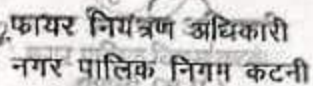 फायर नियंत्रण अधिकारी
नगर पालिक निगम कटनी